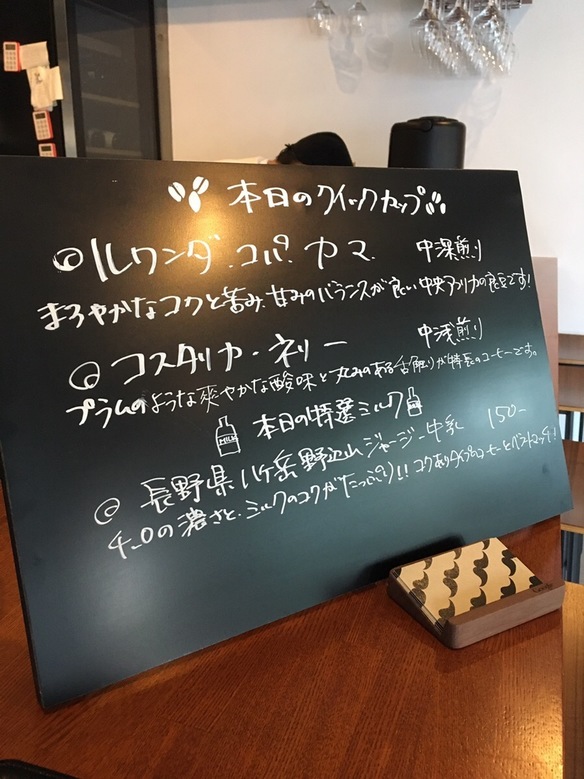 本日のクイックカップ
ルワンダ・コパカマ 中深煎り
まろやかなコクと苦み、甘みのバランスが良い中央アフリカの良豆です!
コスタリカ・ネリー 中浅煎り
プラムのような爽やかな酸味と丸みのある舌触りが特長のコーヒーです。
本日の特選ミルク
MILK
MILK
長野県八ヶ岳野辺山ジャージー牛乳 150-
4.0の濃さと、ミルクのコクがたっぷり!! コクありタイプのコーヒーとベストマッチ!